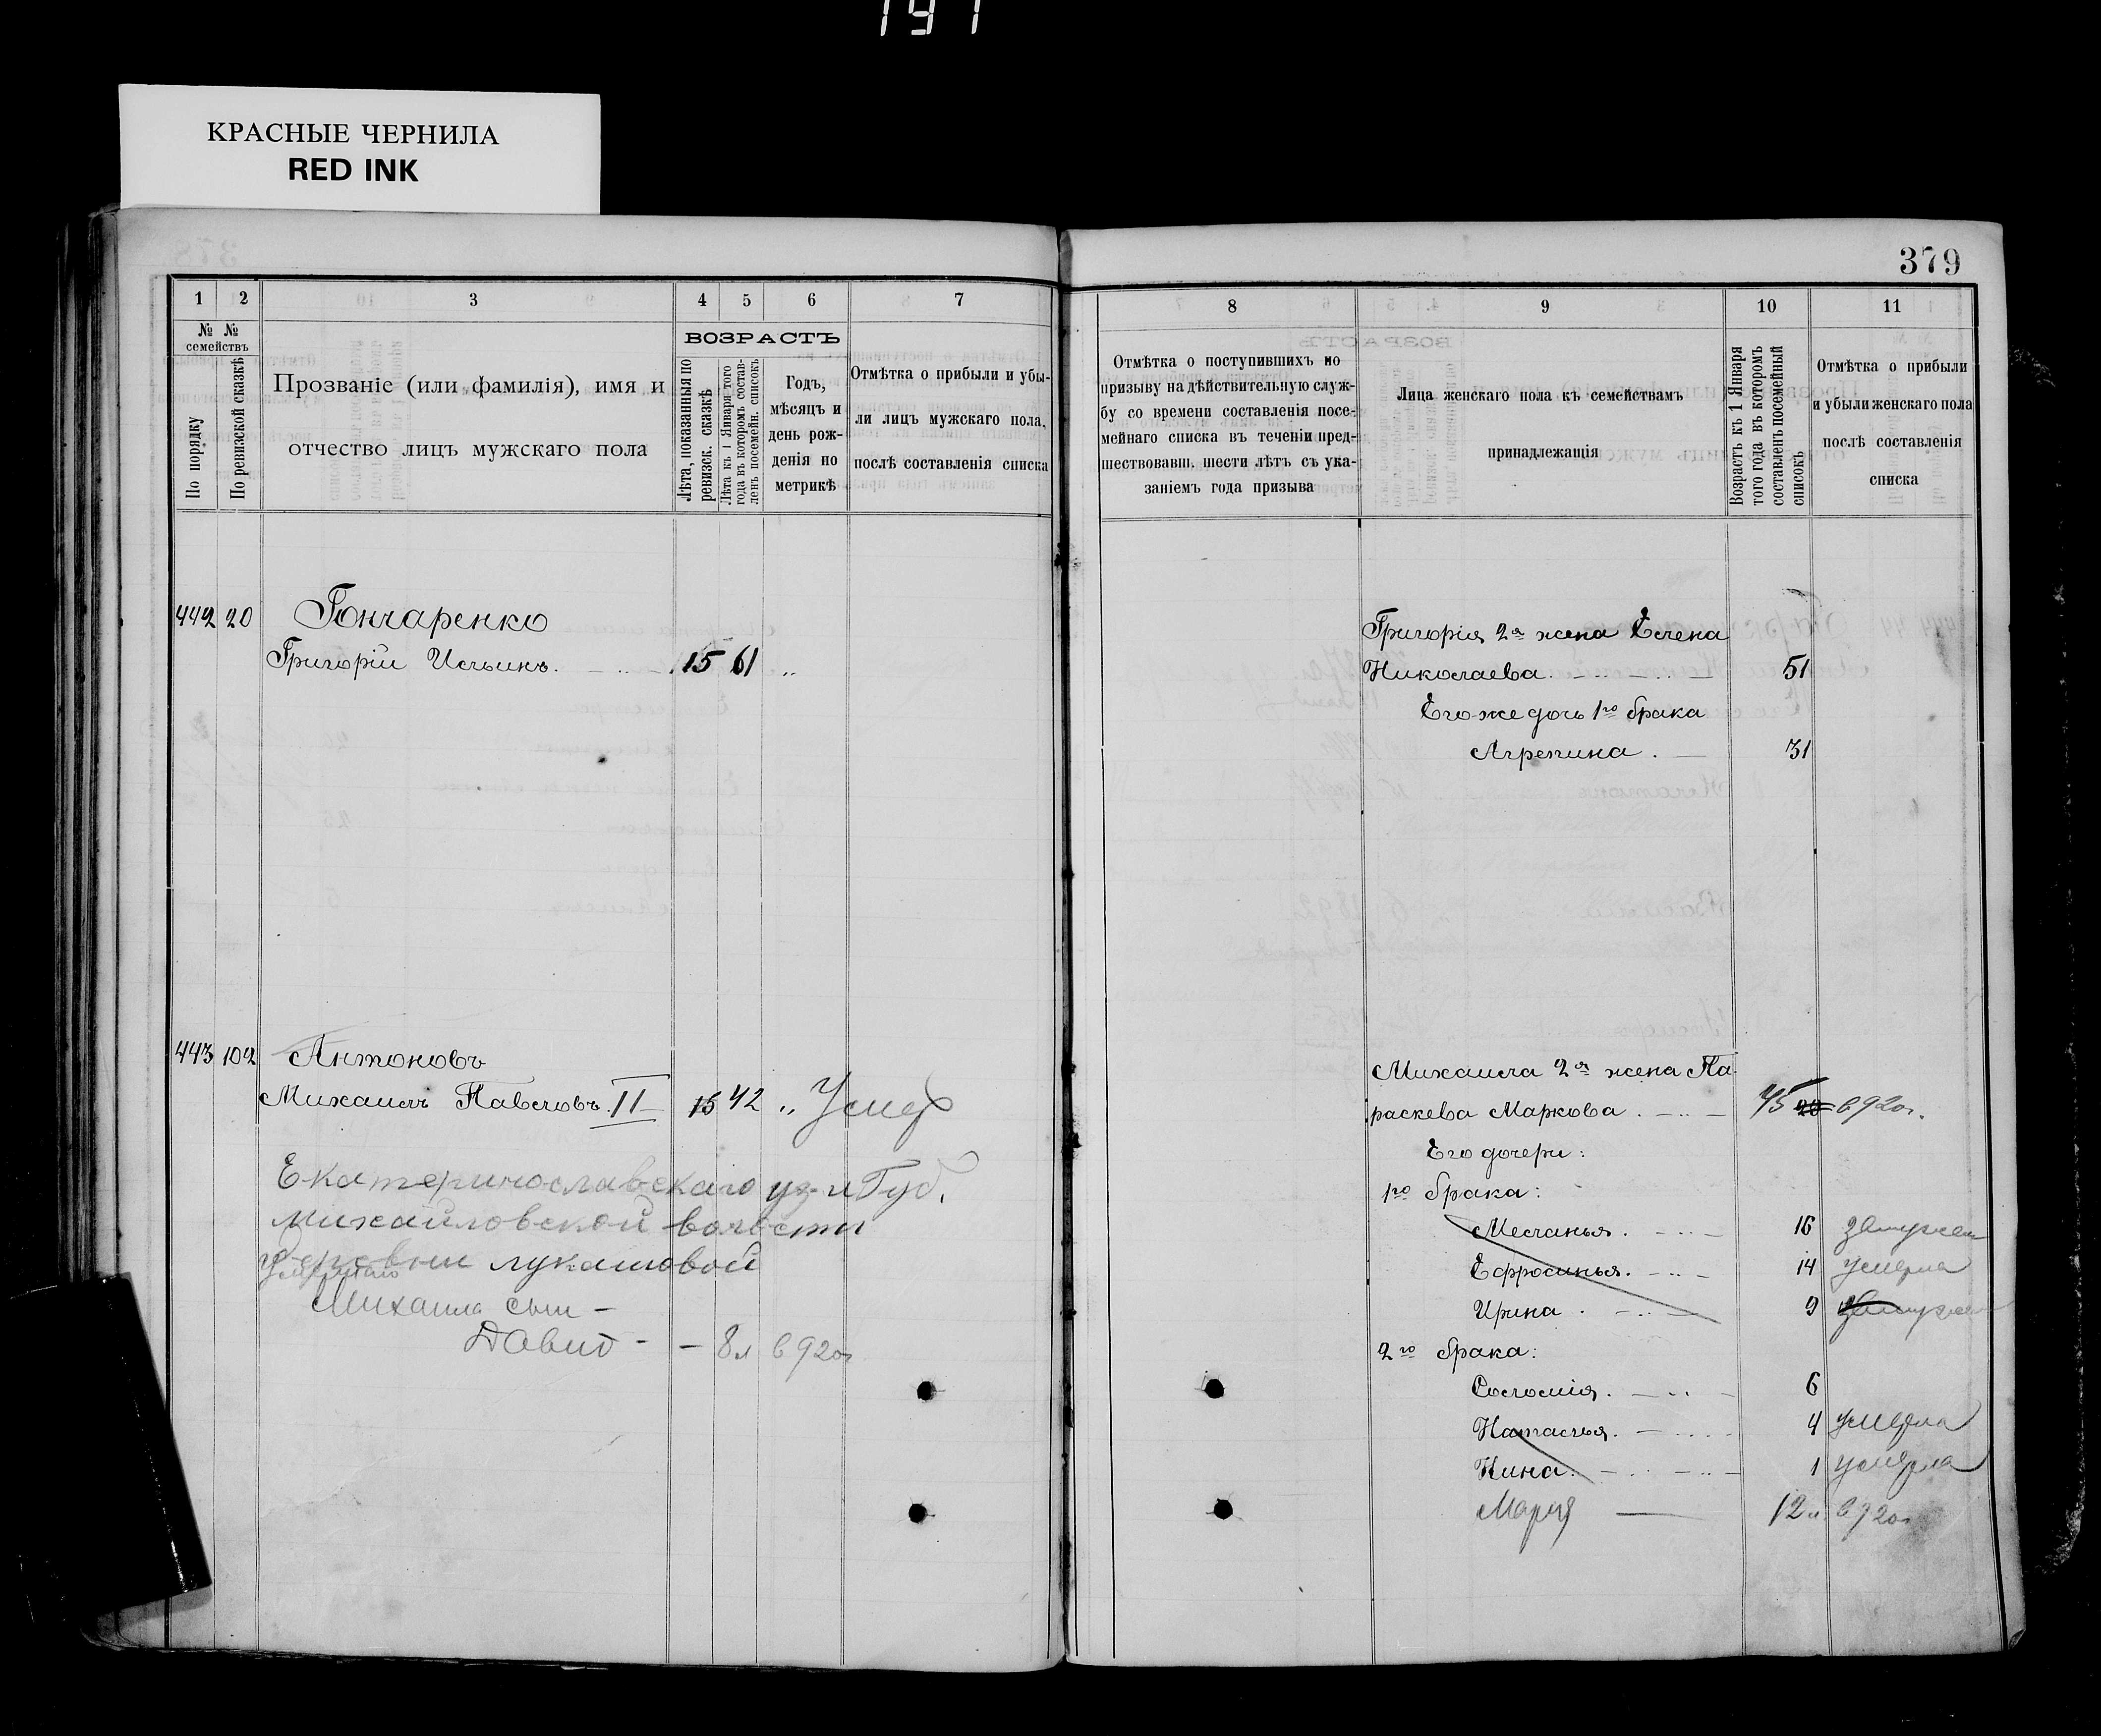 191
КРАСНЫЕ ЧЕРНИЛА
RED INK
379
1 2 3 4 5 6 7
№ № семействъ
По порядку
По ревизской сказкѣ
Прозваніе (или фамилія), имя и
отчество лицъ мужскаго пола
ВОЗРАСТЪ
Лѣта, показанныя по
ревизск. сказкѣ
Лѣта къ 1 Января того
года въ которомъ состав-
ленъ посемейн. списокъ
Годъ,
мѣсяцъ и
день рож-
денія по
метрикѣ
Отмѣтка о прибыли и убы-
ли лицъ мужскаго пола,
послѣ составленія списка
442 20 Гончаренко
Григорій Ильинъ. 15 61 "
443 102 Антоновъ
Михаилъ Павловъ. II 15 42 " Умер
Екатеринославскаго уз. и Губ.
Михайловской волости
деревни Лукашовой
Умершаго
Михаила сын -
Давид - - 8 л в 920г
8 9 10 11
Отмѣтка о поступившихъ по
призыву на дѣйствительную служ-
бу со времени составленія посе-
мейнаго списка въ теченіи пред-
шествовавш. шести лѣтъ съ ука-
заніемъ года призыва
Лица женскаго пола къ семействамъ
принадлежащія
Возрастъ къ 1 Января
того года въ которомъ
составленъ посемейный
списокъ
Отмѣтка о прибыли
и убыли женскаго пола
послѣ составленія
списка
Григорія 2я жена Елена
Николаева. 51
Его же дочь 1го брака
Агрепина. 31
Михаила 2я жена Па-
раскева Маркова. 45 в 920г.
Его дочери:
1го брака:
Меланья. 16 замужем
Ефросинья. 14 умерла
Ирина. 9 замужем
2го брака:
Соломія. 6
Наталья. 4 умерла
Нина. 1 умерла
Мария 12 л. в 920г